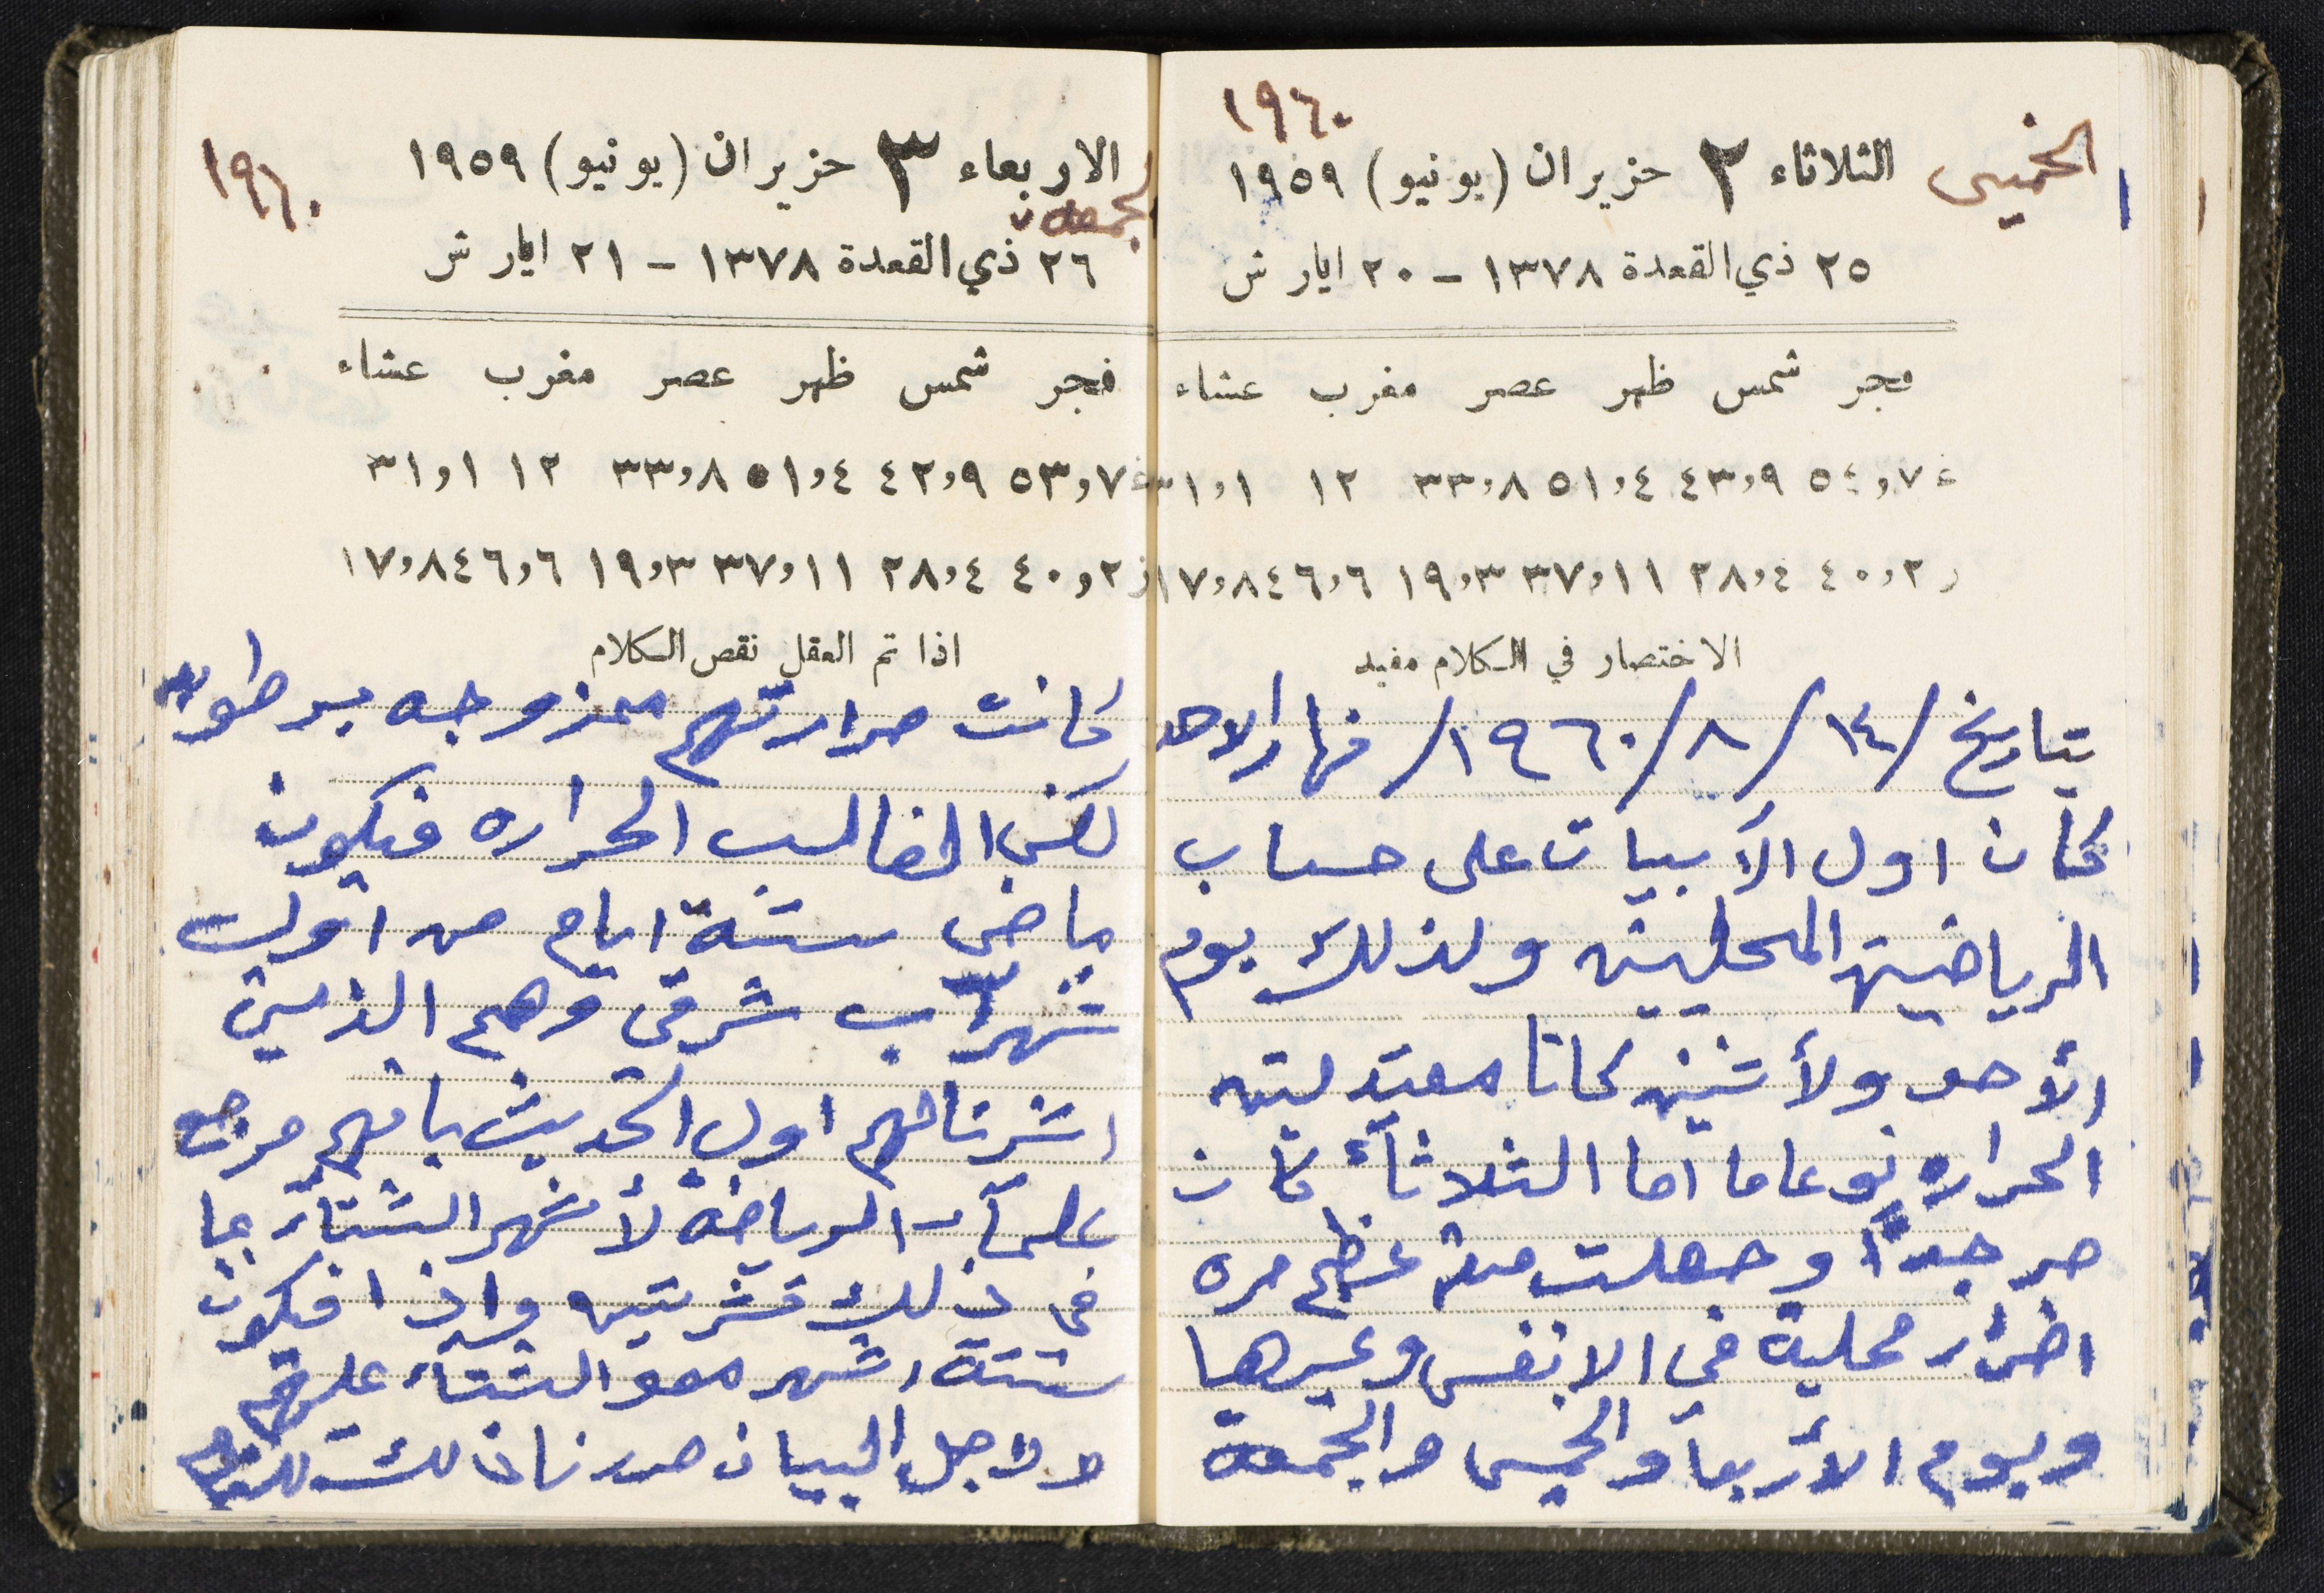 ١٩٦٠
الخميس
الثلاثاء ٢ حزيران (يونيو) ١٩٥٩
٢٥ ذي القعدة ١٣٧٨ - ٢٠ ايار ش
فجر شمس ظهر عصر مغرب عشاء
غ ٧,٥٤ ٩,٤٣ ٤,٥١ ٨,٣٣ ١٢ ١,٣١
ز ٢,٤٠ ٤,٢٨ ١١,٣٧ ٣,١٩ ٦,٤٦ ٨,١٧
الاختصار في الكلام مفيد
بتاريخ /١٤/٨/١٩٦٠/ نهار الاحد
كان اول الآبيات على حساب
الرياضين المحليين ولذلك يوم
الأحد ولأثنين كانا معتدلين
الحراره نوعاما اما الثلاثآء كان
حر جداً وجعلت منه عظم مره
اضرار محلية في الانفس وغيرها
ويوم الأربعآ والخميس والجمعة
١٩٦٠
الاربعاء ٣ حزيران (يونيو) ١٩٥٩
الجمعة
٢٦ ذي القعدة ١٣٧٨ - ٢١ ايار ش
فجر شمس ظهر عصر مغرب عشاء
غ ٧,٥٣ ٩,٤٢ ٤,٥١ ٨,٣٣ ١٢ ١,٣١
ز ٢,٤٠ ٤,٢٨ ١١,٣٧ ٣,١٩ ٦,٤٦ ٨,١٧
اذا تم العقل نقص الكلام
كانت حرارتهم ممزوجه
لكن الغالب الحراره فيكون
ماضي ستة ايام من اول
شهر آب شرقي وهم الذين
اشرناهم اول الحديث بانهم
الرياضة لأشهر الشتآء بما
في ذلك تشرين واذا فيكون
ستة اشهر الشتآء عليهم
ولاجل البيان حررنا ذلك